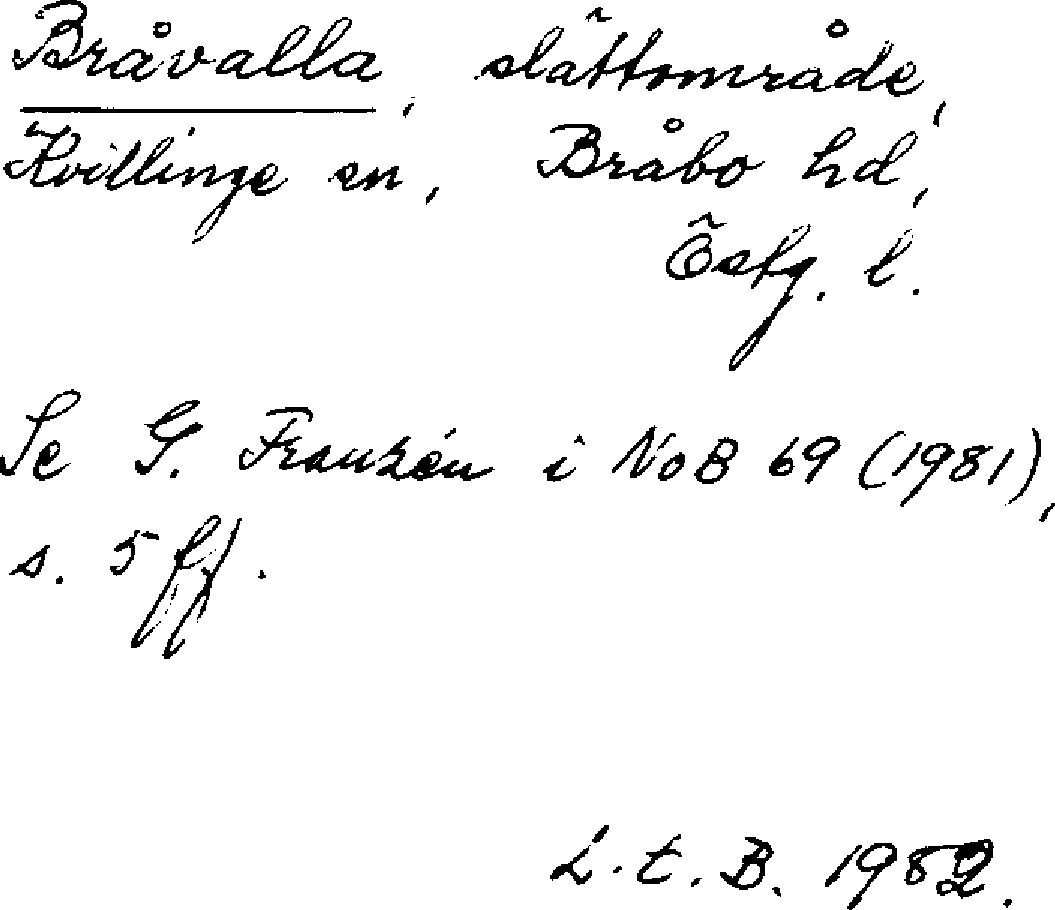 Bråvalla, slättområde,
Kvillinge sn, Bråbo hd,
Östg. l.
Se G. Franzén i NoB 69 (1981),
s. 5 ff.
L.t.B. 1982.